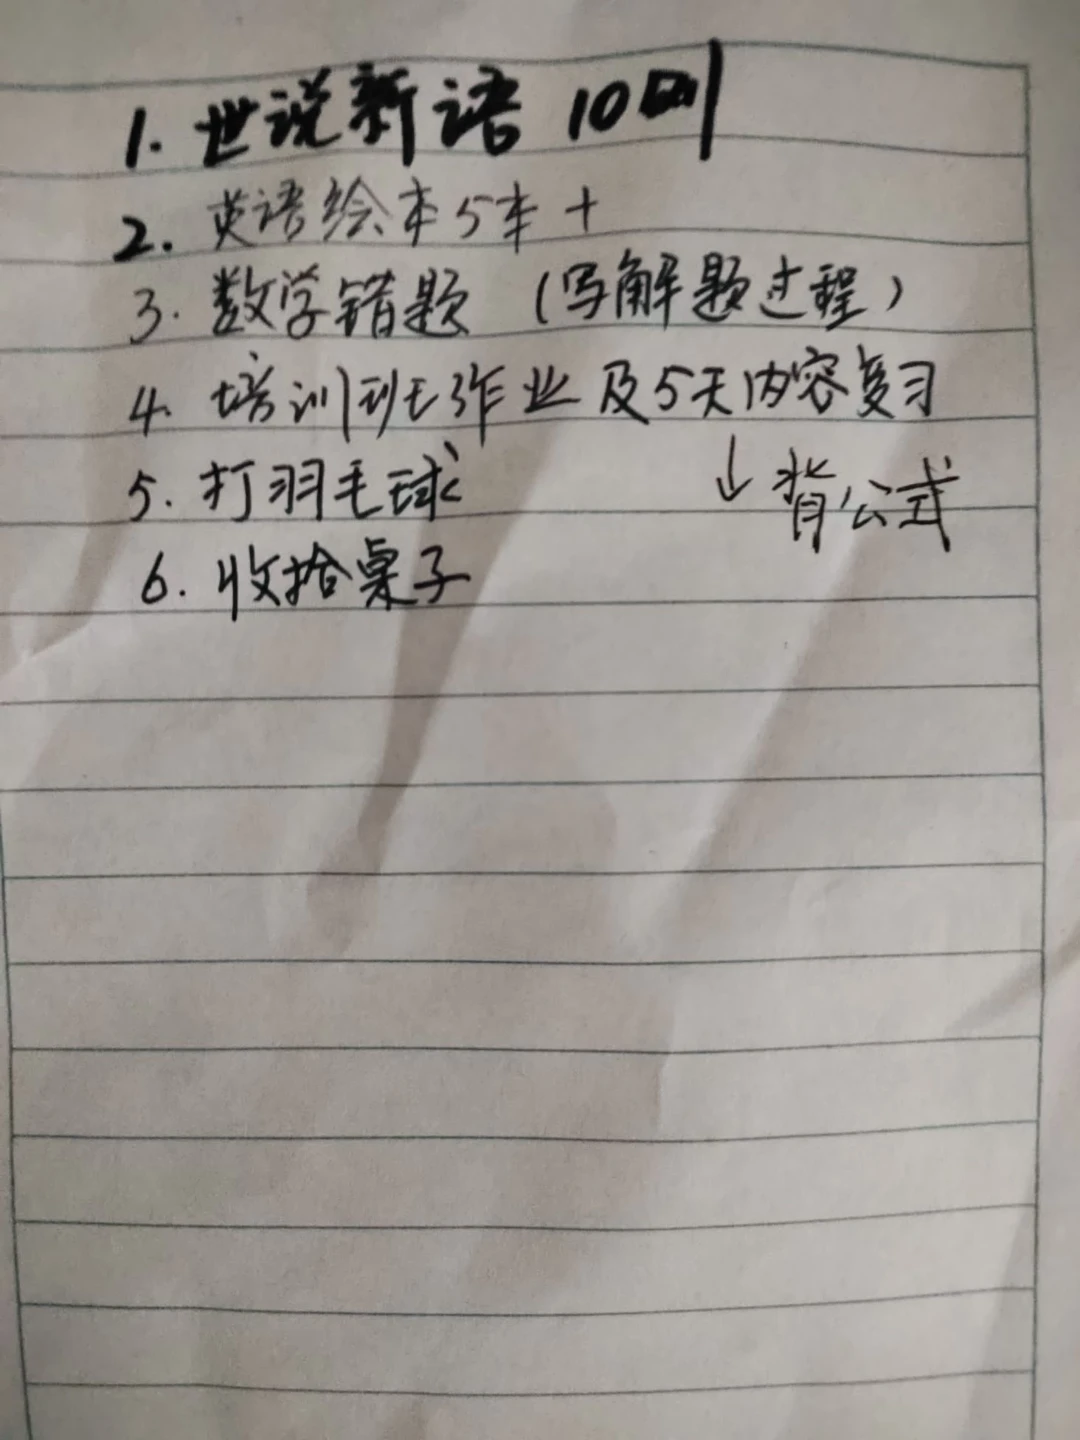 1. 世说新语 10则
2. 英语绘本5本 +
3. 数学错题 (写解题过程)
4. 培训班作业及5天内容复习
↓背公式
5. 打羽毛球
6. 收拾桌子